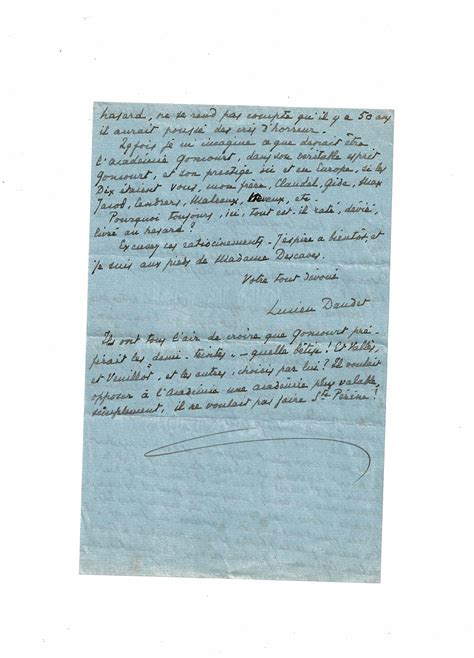 hasard, ne se rend pas compte qu'il y a 50 ans
il aurait poussé des cris d'horreur.
Qqfois je m'imagine ce que devrait être
l'académie Goncourt, dans son véritable esprit
Goncourt, et son prestige ici et en Europe, si les
Dix étaient vous, mon frère, Claudel, Gide, Max
Jacob, Cendrars, Malraux, etc.
Pourquoi toujours, ici, tout est-il raté, dévié,
livré au hasard?
Excusez ces ratiocinements - J'espère à bientôt, et
je suis aux pieds de Madame Descaves.
Votre tout dévoué
Lucien Daudet
Ils ont tous l'air de croire que Goncourt pré-
férait les demi-teintes, - quelle bêtise! Et Vallès,
et Veuillot, et les autres, choisis par lui? Il voulait
opposer à l'Académie une académie plus valable,
simplement, il ne voulait pas faire Ste Périne!